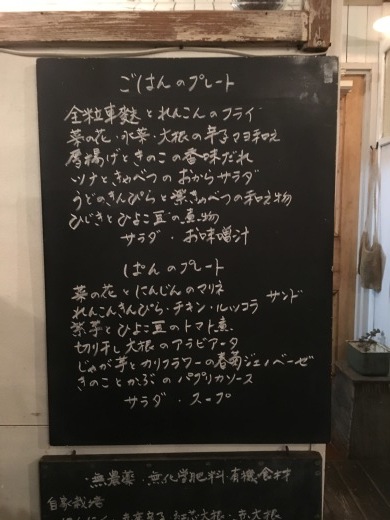 ごはんのプレート
全粒車麩とれんこんのフライ
菜の花・水菜・大根の辛子マヨ和え
厚揚げときのこの香味だれ
ツナときゃべつのおからサラダ
うどのきんぴらと紫きゃべつの和え物
ひじきとひよこ豆の煮物
サラダ・お味噌汁
ぱんのプレート
菜の花とにんじんのマリネ
れんこんきんぴら・チキン・ルッコラ サンド
紫芋とひよこ豆のトマト煮
切り干し大根のアラビアータ
じゃが芋とカリフラワーの春菊ジェノベーゼ
きのことかぶのパプリカソース
サラダ・スープ
・無農薬・無化学肥料・有機食材
自家栽培
赤大根